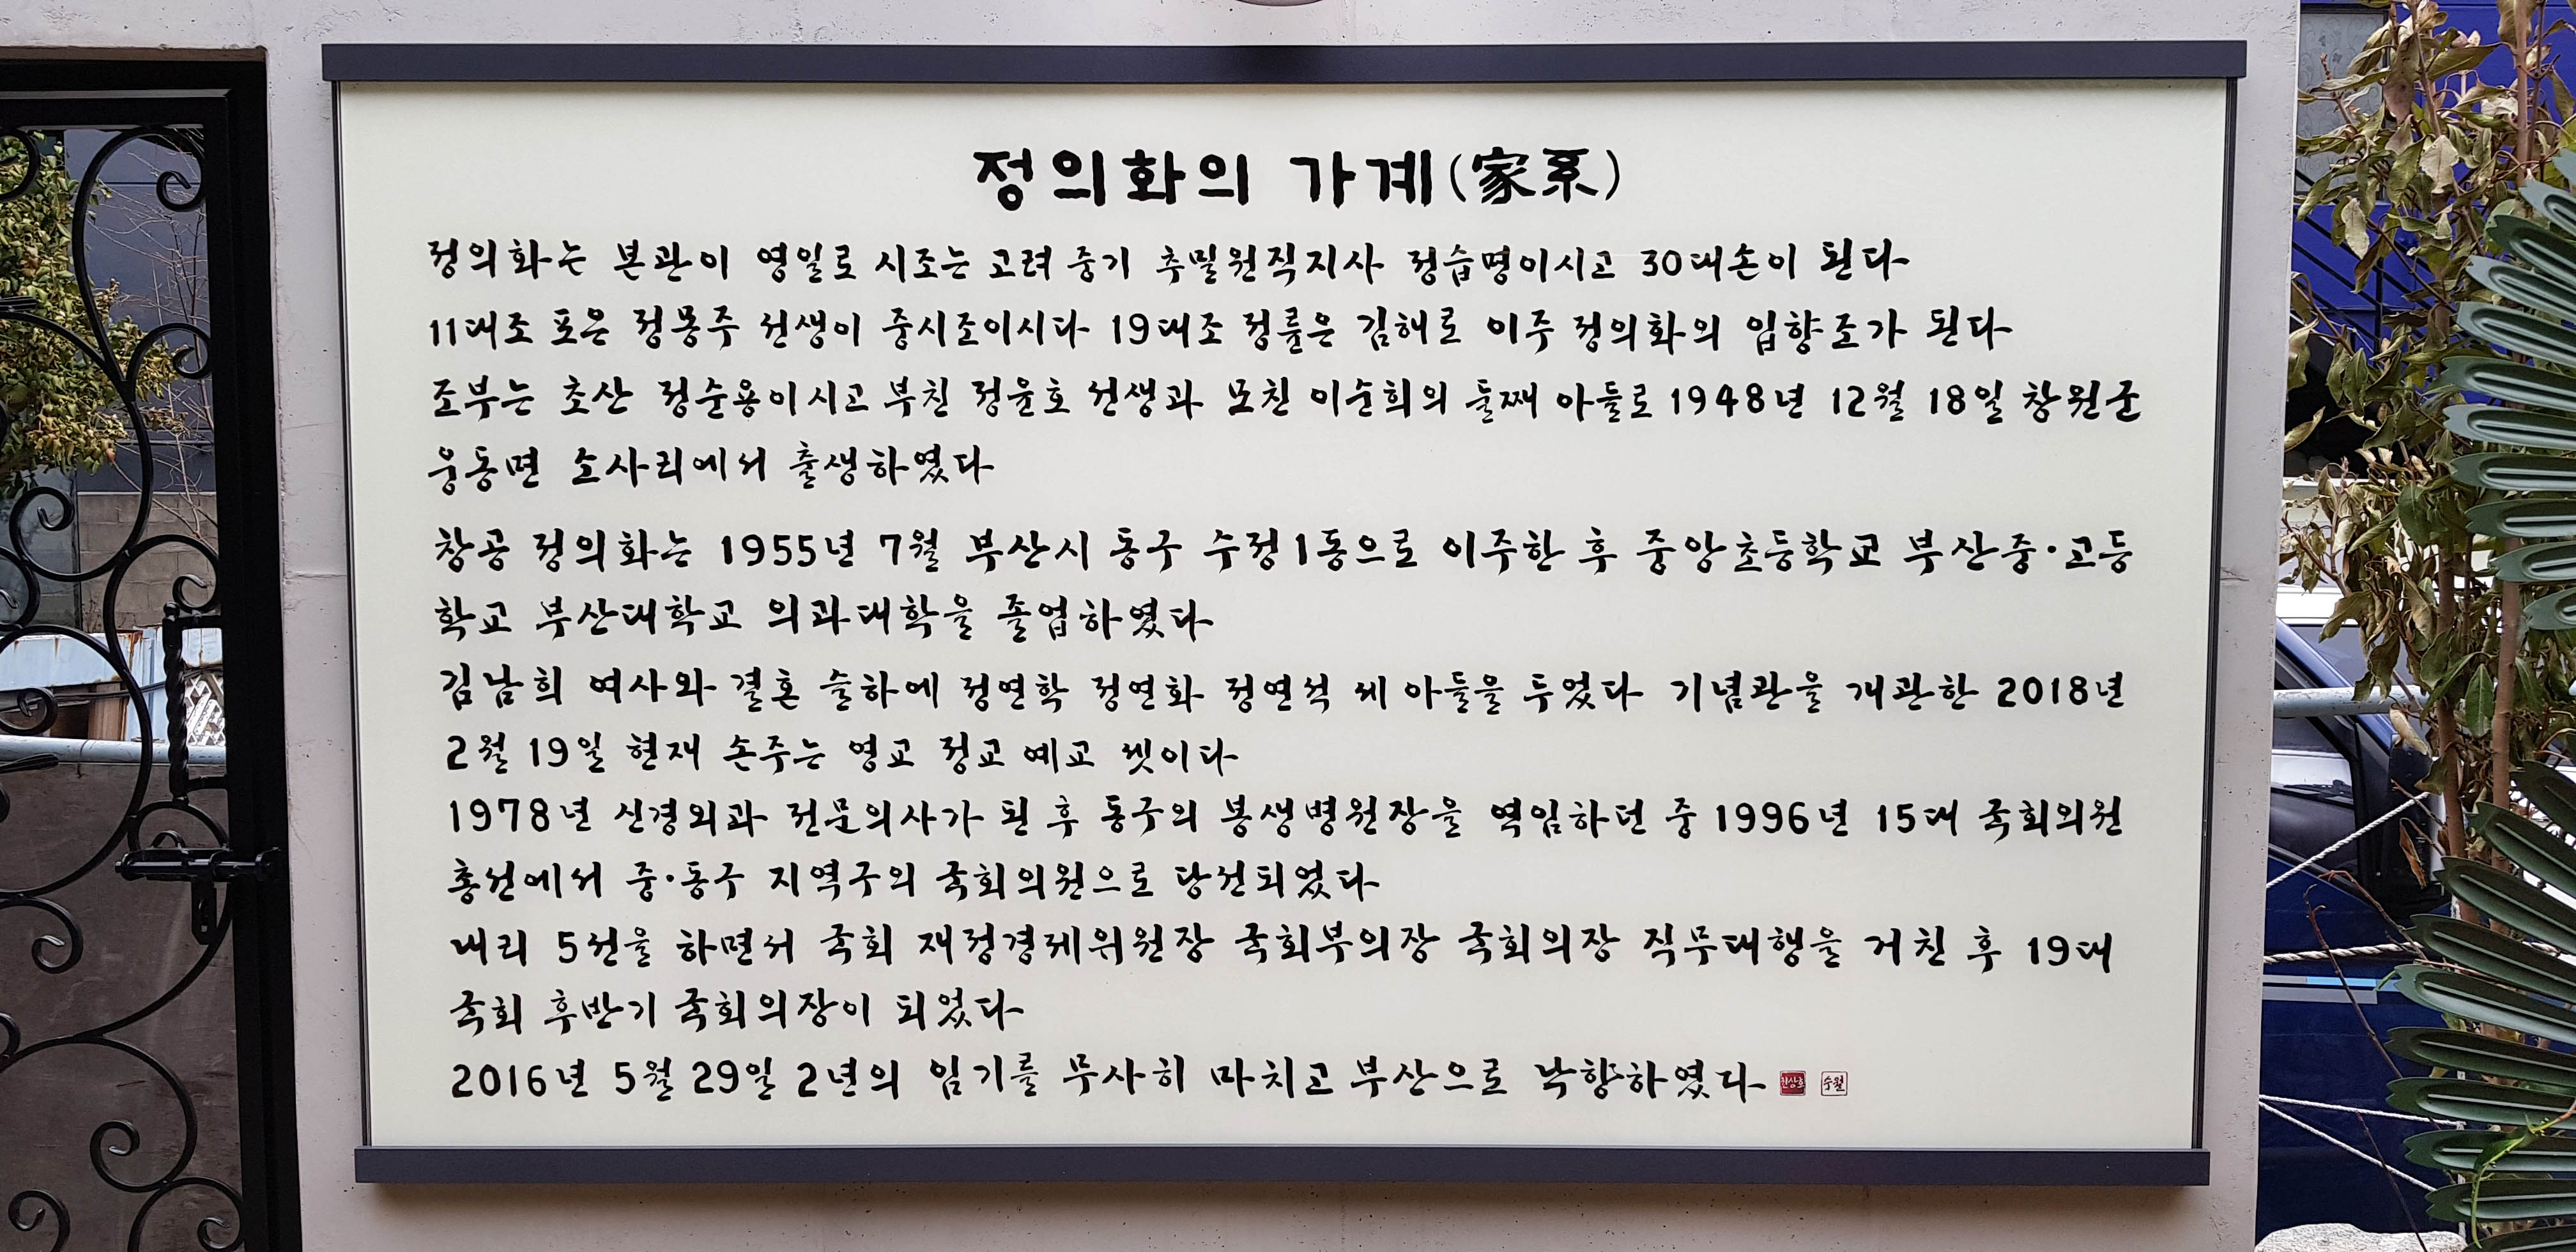 정의화의 가계(家系)
정의화는 본관이 영일로 시조는 고려 중기 추밀원직지사 정습명이시고 30대손이 된다
11대조 포은 정몽주 선생이 중시조이시다 19대조 정률은 김해로 이주 정의화의 입향조가 된다
조부는 초산 정순용이시고 부친 정윤호 선생과 모친 이순희의 둘째 아들로 1948년 12월 18일 창원군
웅동면 소사리에서 출생하였다
창공 정의화는 1955년 7월 부산시 동구 수정1동으로 이주한 후 중앙초등학교 부산중·고등
학교 부산대학교 의과대학을 졸업하였다
김남희 여사와 결혼 슬하에 정연학 정연화 정연석 세 아들을 두었다 기념관을 개관한 2018년
2월 19일 현재 손주는 영교 정교 예교 셋이다
1978년 신경외과 전문의사가 된 후 동구의 봉생병원장을 역임하던 중 1996년 15대 국회의원
총선에서 중·동구 지역구의 국회의원으로 당선되었다
내리 5선을 하면서 국회 재정경제위원장 국회부의장 국회의장 직무대행을 거친 후 19대
국회 후반기 국회의장이 되었다
2016년 5월 29일 2년의 임기를 무사히 마치고 부산으로 낙향하였다 수월